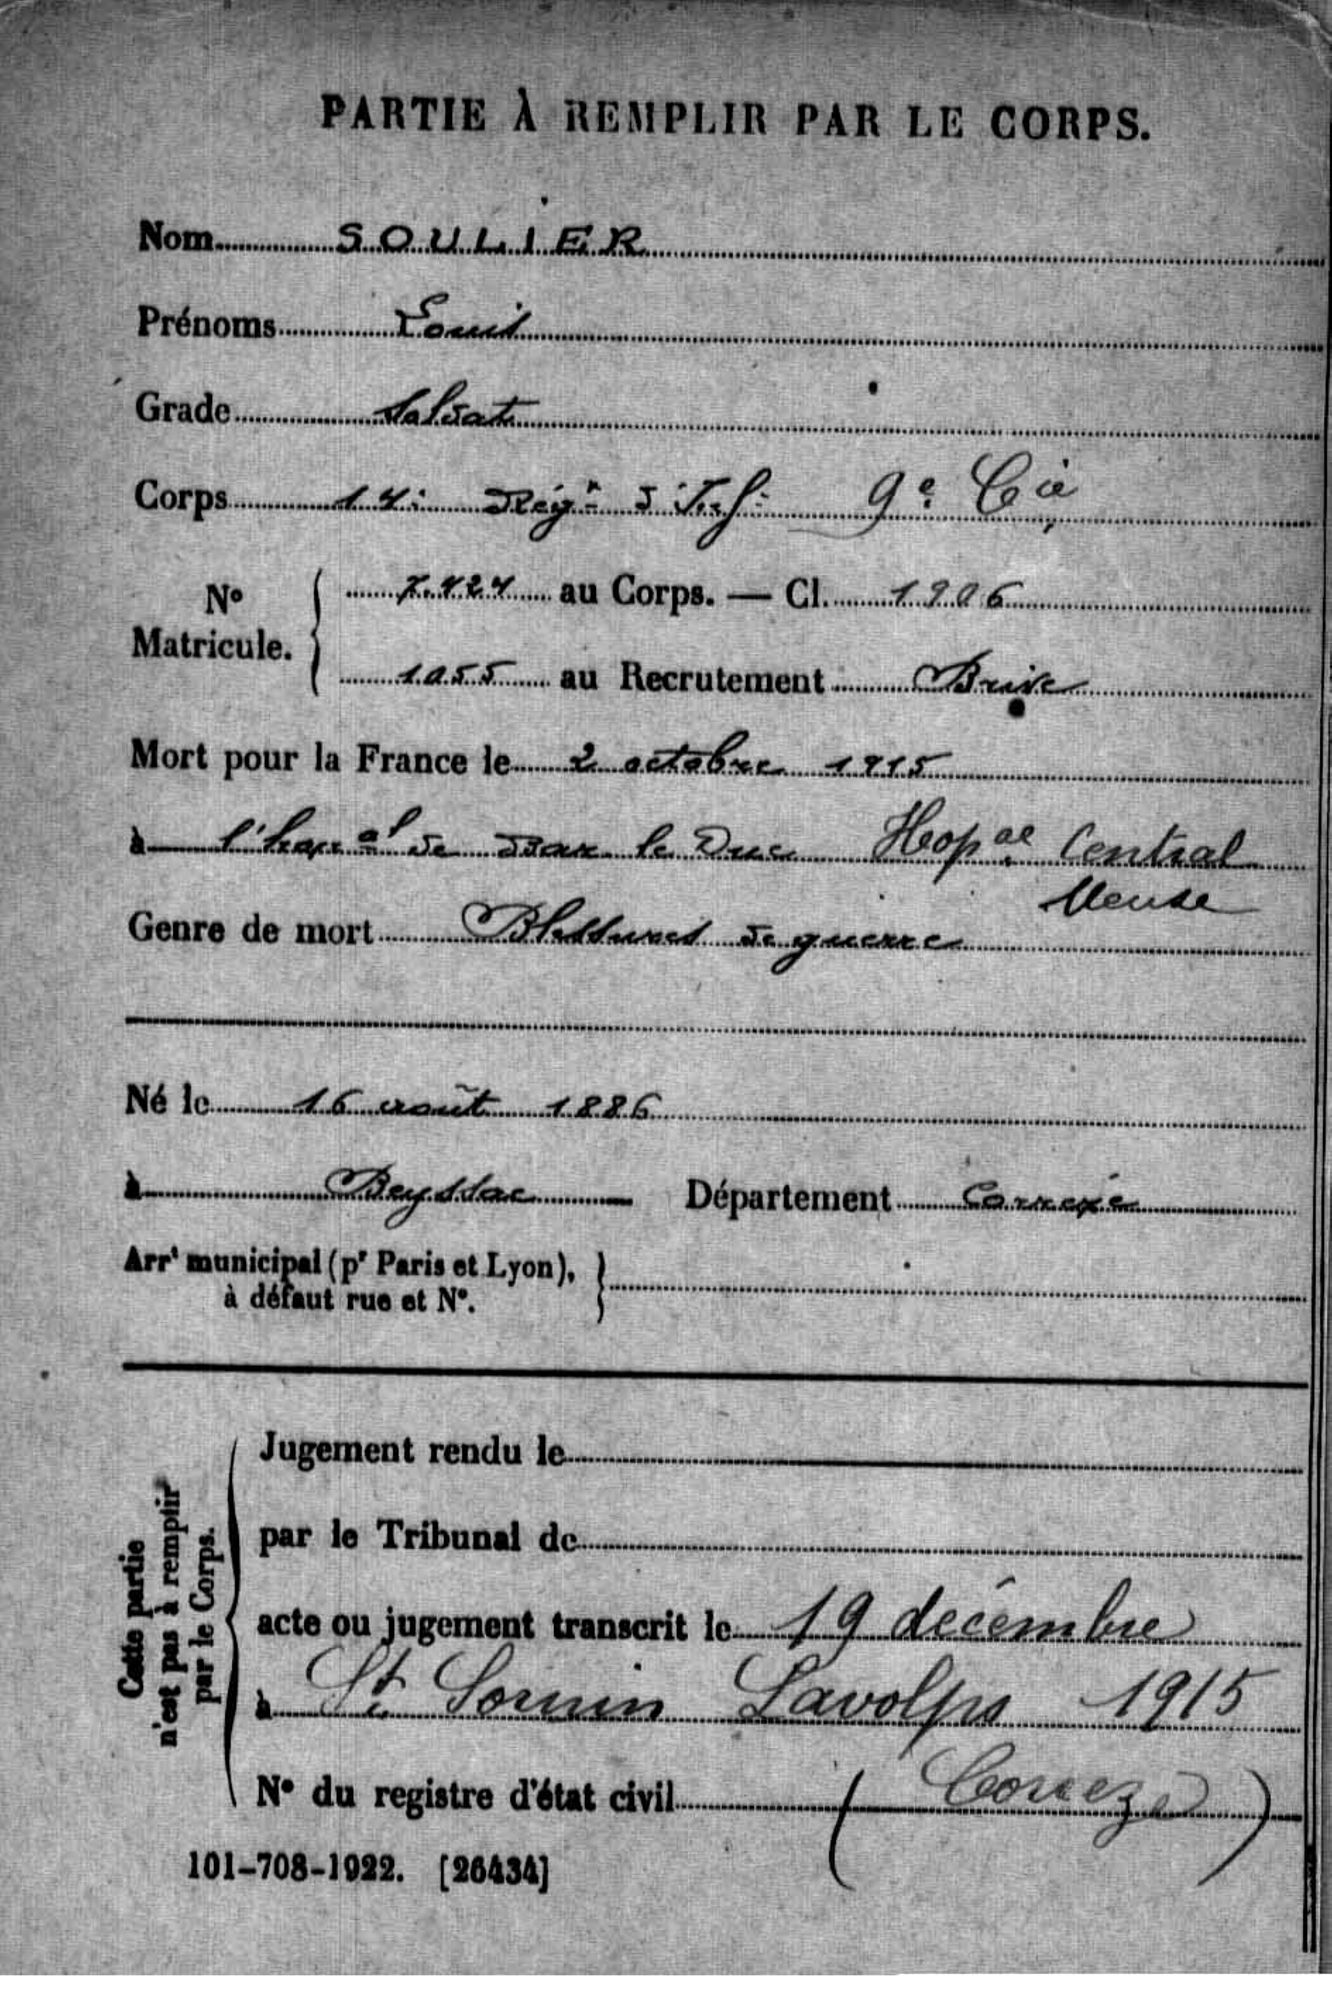 PARTIE À REMPLIR PAR LE CORPS.
Nom SOULIER
Prénoms Louis
Grade Soldat
Corps 14e Régt d'Inf. 9e Cie
No Matricule. 7.424 au Corps. — Cl. 1906
1055 au Recrutement Brive
Mort pour la France le 2 octobre 1915
à l'hopal de Bar le Duc Hopal Central
Meuse
Genre de mort Blessures de guerre
Né le 16 août 1886
à Beyssac Département Corrèze
Arrt municipal (pr Paris et Lyon),
à défaut rue et No.
Cette partie
n'est pas à remplir
par le Corps.
Jugement rendu le
par le Tribunal de
acte ou jugement transcrit le 19 décembre
à St Sornin Lavolps 1915
No du registre d'état civil (Corrèze)
101-708-1922. [26434]